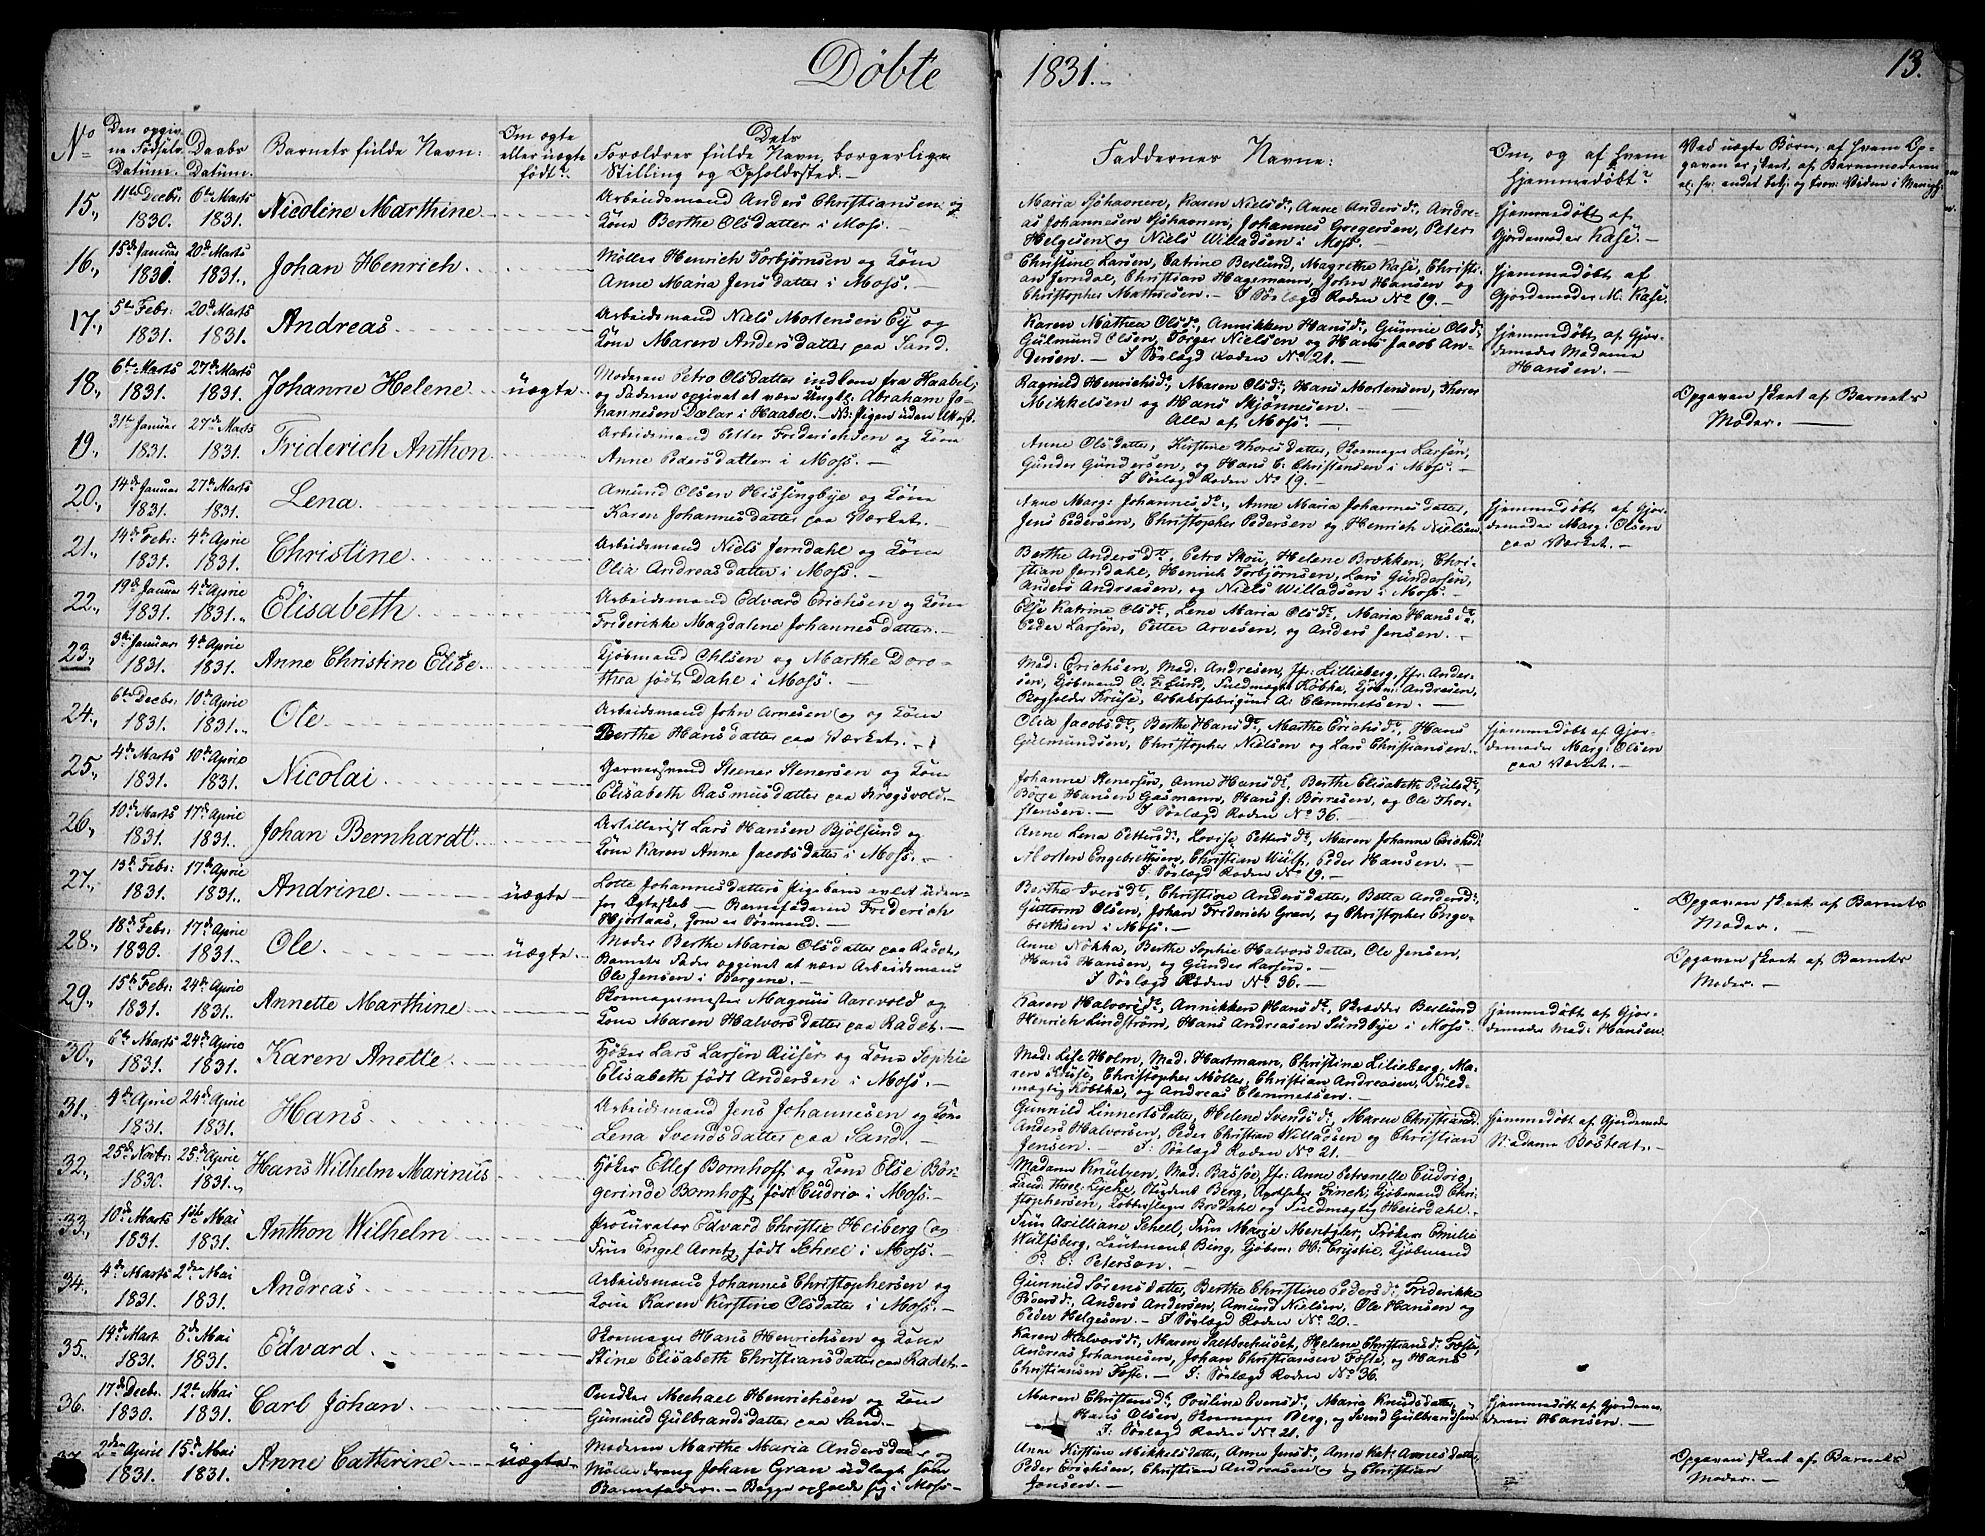 Døbte 1831.
13.
No
Den opgiv-
ne Fødsels
Datum.
Daabs
Datum.
Barnets fulde Navn:
Om ægte
eller uægte
født?
Dets
Forældres fulde Navn, borgerlige
Stilling og Opholdssted.
Faddernes Navne:
Om, og af hvem
hjemmedøbt?
Ved uægte Børn, af hvem Op-
gaven er skeet, af Barnemoderen
15., 11te Decbr: 1830. 6te Marts 1831. Nicoline Marthine
Arbeidsmand Anders Christiansen og
Kone Berthe Olsdatter i Moss.
Maria Johansen, Karen Nielsd., Anne Andersd., Andre-
as Johannesen, Johannes Gregersen, Peter
Helgesen og Niels Willadsen i Moss.
Hjemmedøbt af
Gjordemoder Kase.
16., 15de Januar 1831. 20de Marts 1831. Johan Henrich
Møller Henrich Torbjørnsen og Kone
Anne Maria Jensdatter i Moss.
Christine Larsen, Catrine Berlund, Magrethe Kase, Christi-
an Jerndal, Christian Hagemann, John Hansen og
Christopher Mathiesen. I Søelægd Roden No 19.
Hjemmedøbt af
Gjordemoder M. Kase.
17., 5te Febr: 1831. 20de Marts 1831. Andreas
Arbeidsmand Niels Mortensen Ey og
Kone Maren Andersdatter paa Sand.
Karen Mathea Olsd., Annikken Hansd., Gunnie Olsd.
Gulmund Olsen, Torger Nielsen og Hans Jacob An-
dersen. I Søelægd Roden No 21.
Hjemmedøbt af Gjor-
demoder Madame
Hansen.
18., 6te Marts 1831. 27de Marts 1831. Johanne Helene uægte
Moderen Petro Olsdatter indkom fra Haabel,
og Faderen opgivet at være Ungk: Abraham Jo-
hannesen Dælar i Haabel. NB: Pigen uden Attest.
Ragnild Henrichsd., Maren Olsd., Hans Mortensen, Thores
Mikkelsen og Hans Skjønnesen.
Alle af Moss.
Opgaven skeet af Barnets
Moder.
19., 31te Januar 1831. 27de Marts 1831. Friderich Anthon
Arbeidsmand Petter Friderichsen og Kone
Anne Pedersdatter i Moss.
Anne Olsdatter, Kirstine Thoresdatter, Skomager Larsen,
Gunder Gundersen, og Hans C. Christensen i Moss.
I Søelægd Roden No 19.
20., 14de Januar 1831. 27de Marts 1831. Lena
Amund Olsen Hissingbye og Kone
Karen Johannesdatter paa Værket.
Anne Marg: Johannesd., Anne Maria Johannesdatter,
Jens Pedersen, Christopher Pedersen og Henrich Nielsen
Hjemmedøbt af Gjor-
demoder Marg: Olsen
paa Værket.
21., 14de Febr: 1831. 4de April 1831. Christine
Arbeidsmand Niels Jerndahl og Kone
Olia Andreasdatter i Moss.
Berthe Andersd., Petro Skou, Helene Brekken, Chri-
stian Jerndahl, Henrich Torbjørnsen, Lars Gundersen,
Anders Andreasen, og Niels Willadsen i Moss.
22., 19de Januar 1831. 4de April 1831. Elisabeth
Arbeidsmand Edvard Erichsen og Kone
Friderikke Magdalene Johannesdatter.
Else Katrine Olsd., Lene Maria Olsd., Maria Hansd.,
Peder Larsen, Petter Arvesen, og Anders Jensen.
23., 3de Januar 1831. 4de April 1831. Anne Christine Elise.
Kjøbmand Ohlsen og Marthe Doro-
thea født Dahl i Moss.
Mad: Erichsen, Mad: Andresen, Jfr: Lillieberg, Jfr: Ander-
sen, Kjøbmand C. F. Lund, Fuldmægtig Købke, Kjøbm: Andresen,
Bogholder Kruse, Tobaksfabriqueur A: Clemmetsen.
24., 6te Decbr: 1831. 10de April 1831. Ole
Arbeidsmand John Arnesen og Kone
Berthe Hansdatter paa Værket.
Olia Jacobsd., Berthe Hansd., Marthe Erichsd., Hans
Gulmundsen, Christopher Nielsen og Lars Christiansen.
Hjemmedøbt af Gjor-
demoder Marg: Olsen
paa Værket.
25., 4de Marts 1831. 10de April 1831. Nicolai
Garversvend Steener Stenersen og Kone
Elisabeth Rasmusdatter paa Krogsvold.
Johanne Stenersen, Anne Hansd., Berthe Elisabeth Poulsd.,
Børge Hansen Gasmann, Hans J: Børresen, og Ole Thor-
stensen. I Søelægd Roden No 36.
26., 10de Marts 1831. 17de April 1831. Johan Bernhardt.
Artillerist Lars Hansen Bjølsund og
Kone Karen Anne Jacobsdatter i Moss.
Anne Lena Pettersd., Lovise Pettersd., Maren Johanne Erichsd.
Morten Engebrethsen, Christian Wulf, Peder Hansen.
I Søelægd Roden No 19.
27., 13de Febr: 1831. 17de April 1831. Andrine uægte
Lotte Johannesdatters Pigebarn avlet uden-
for Ægteskab. Barnefaderen Friderich
Hjortaas, som er Sømand.
Berthe Iversd., Christine Andersdatter, Betta Andersd.
Guttorm Olsen, Johan Friderich Gran, og Christopher Enge-
brethsen i Moss.
Opgaven skeet af Barnets
Moder.
28., 18de Febr: 1830. 17de April 1831. Ole uægte
Moder Berthe Maria Olsdatter paa Radet.
Barnets Fader opgivet at være Arbeidsmand
Ole Jensen i Bergene.
Anne Nøkka, Berthe Sophie Halvorsdatter, Ole Jensen,
Hans Hansen, og Gunder Larsen.
I Søelægd Roden No 36.
Opgaven skeet af Barnets
Moder.
29., 15de Febr: 1831. 24de April 1831. Annette Marthine
Skomagermester Magnus Aarevold og
Kone Maren Halvorsdatter paa Radet.
Karen Halvorsd., Annikken Hansd., Skrædder Berlund
Henrich Lindstrøm, Hans Andreasen Sundbye i Moss.
Hjemmedøbt af Gjor-
demoder Mad: Hansen.
30., 6te Marts 1831. 24de April 1831. Karen Anette
Høker Lars Larsen Riiser og Kone Sophie
Elisabeth født Andersen i Moss.
Mad: Lise Holm, Mad: Hartmann, Christine Lilieberg, Ma-
ren Kruse, Christopher Møller, Christian Andreasen, Fuld-
mægtig Købtke, og Andreas Clemmetsen.
31., 4de April 1831. 24de April 1831. Hans
Arbeidsmand Jens Johannesen og Kone
Lena Svendsdatter paa Sand.
Gunnild Linnertsdatter, Helene Svendsd., Maren Christiansd.
Anders Halvorsen, Peder Christian Willadsen og Christian
Jensen. I: Søelægd Roden No 21.
Hjemmedøbt af Gjordemoder
Madame Bostedt.
32., 25de Novbr: 1830. 25de April 1831. Hans Wilhelm Marinius
Høker Ellef Bomhoff og Kone Else Bør-
gerinde Bomhoff, født Ludvig i Moss.
Madame Knutzen, Mad: Basse, Jfr: Anne Petronelle Ludvig,
Cand: Theol Lycke, Student Berg, Apotheker Finck, Kjøbmand Chri-
stophersen, Kobberslager Brodahl og Fuldmægtig Heierdahl.
33., 10de Marts 1831. 1ste Mai 1831. Anthon Wilhelm
Procurator Edvard Christie Heiberg og
Frue Engel Arntz, født Scheel i Moss.
Frue Axilliane Scheel, Frue Marie Mentzler, Frøken Emilie
Wulfsberg, Leutnant Bing, Kjøbm: H: Crystie, Kjøbmand
P. C. Peterson.
34., 4de Marts 1831. 2den Mai 1831. Andreas
Arbeidsmand Johannes Christophersen og
Kone Karen Kirstine Olsdatter i Moss.
Gunnild Sørensdatter, Berthe Christine Pedersd., Friderikke
Boersd., Anders Andersen, Amund Nielsen, Ole Hansen og
Peder Helgesen. I Søelægd Roden No 20.
35., 14de Mart 1831. 8de Mai 1831. Edvard
Skomager Hans Henrichsen og Kone
Stine Elisabeth Christiansdatter paa Radet.
Karen Halvorsd., Maren Saltboehuset, Helene Christiansd. Foste,
Andreas Johannesen, Johan Christiansen Foste, og Hans
Christiansen Foste. I: Søelægd Roden No 36.
36., 17de Decbr. 1830. 12te Mai 1831. Carl Johan
Snedker Mechael Henrichsen og Kone
Gunnild Gulbrandsdatter paa Sand.
Maren Christensd., Pouline Svensd., Maria Knudsdatter,
Hans Olsen, Skomager Berg, og Svend Gulbrandsen
I: Søelægd Roden No 21.
Hjemmedøbt af Gjordemo-
deren Hansen.
37., 2den April 1831. 15de Mai 1831. Anne Catterine uægte
Moderen Marthe Maria Andersdatter
Møllerdreng Johan Gran udlagt som
Barnefader. Begge opholde sig i Moss.
Anne Kirstine Mikkelsdatter, Anne Jensd., Anne Kat: Arnesdatter,
Peder Erichsen, Christian Andreasen og Christian
Jensen.
Opgaven skeet af Barnets
Moder.